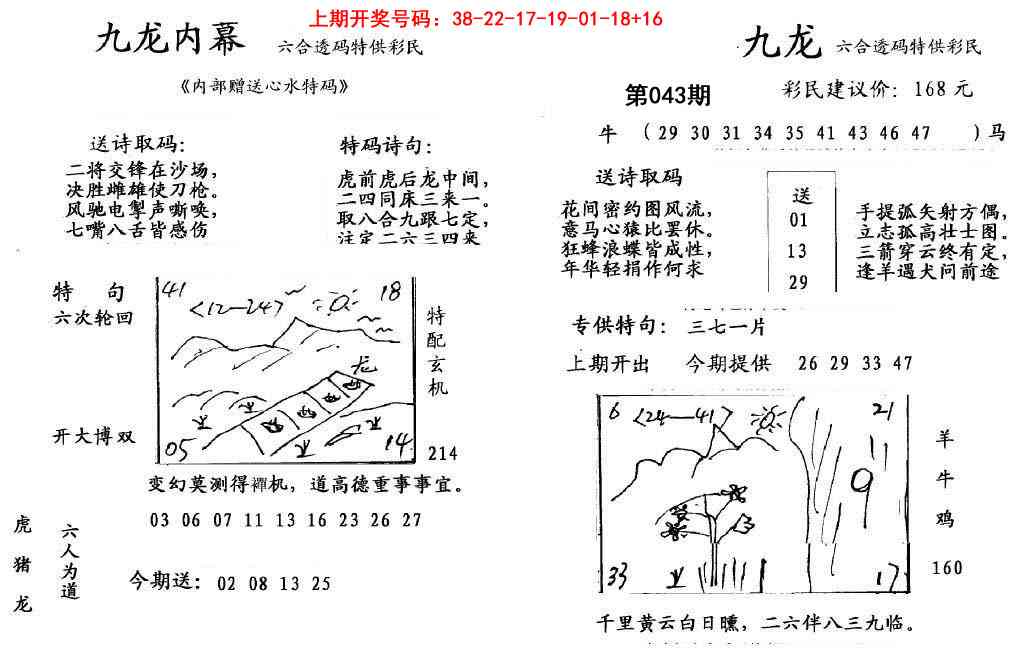 上期开奖号码：38-22-17-19-01-18+16
九龙内幕 六合透码特供彩民
《内部赠送心水特码》
送诗取码：
二将交锋在沙场，
决胜雌雄使刀枪。
风驰电掣声嘶唤，
七嘴八舌皆感伤
特码诗句：
虎前虎后龙中间，
二四同床三来一。
取八合九跟七定，
注定二六三四来
特 句
六次轮回
开大博双
41
18
<12—24>
龙
05
14
特配玄机
214
变幻莫测得禪机，道高德重事事宜。
03 06 07 11 13 16 23 26 27
虎猪龙
六人为道
今期送：02 08 13 25
九龙 六合透码特供彩民
第043期
彩民建议价：168元
牛 （29 30 31 34 35 41 43 46 47 ）马
送诗取码
花间密约图风流，
意马心猿比罢休。
狂蜂浪蝶皆成性，
年华轻捐作何求
送
01
13
29
手提弧矢射方偶，
立志孤高壮士图。
三箭穿云终有定，
逢羊遇犬问前途
专供特句：三七一片
上期开出 今期提供 26 29 33 47
6
<24—41>
21
11
9
33
17
羊牛鸡
160
千里黄云白日曛，二六伴八三九临。